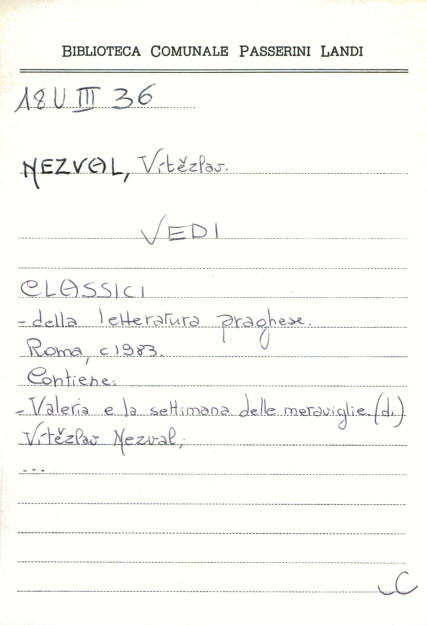 BIBLIOTECA COMUNALE PASSERINI LANDI
18 U III 36
NEZVAL, Vítězlav.
VEDI
CLASSICI
- della letteratura praghese.
Roma, c1983.
Contiene:
- Valeria e la settimana delle meraviglie (di)
Vítězlav Nezval;
...